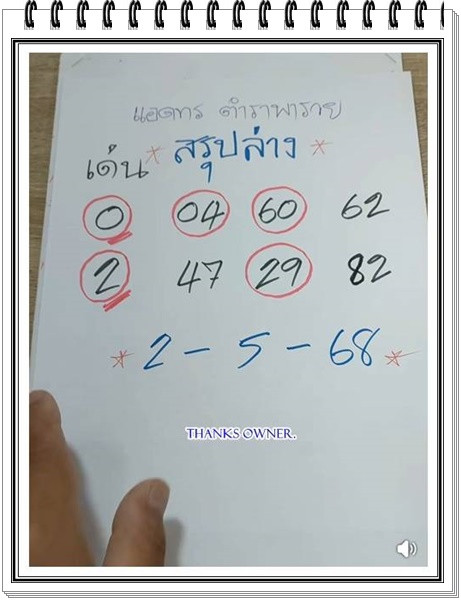 แอดทร ตำราพารวย
* สรุปล่าง *
เด่น
0 04 60 62
2 47 29 82
* 2 - 5 - 68 *
THANKS OWNER.